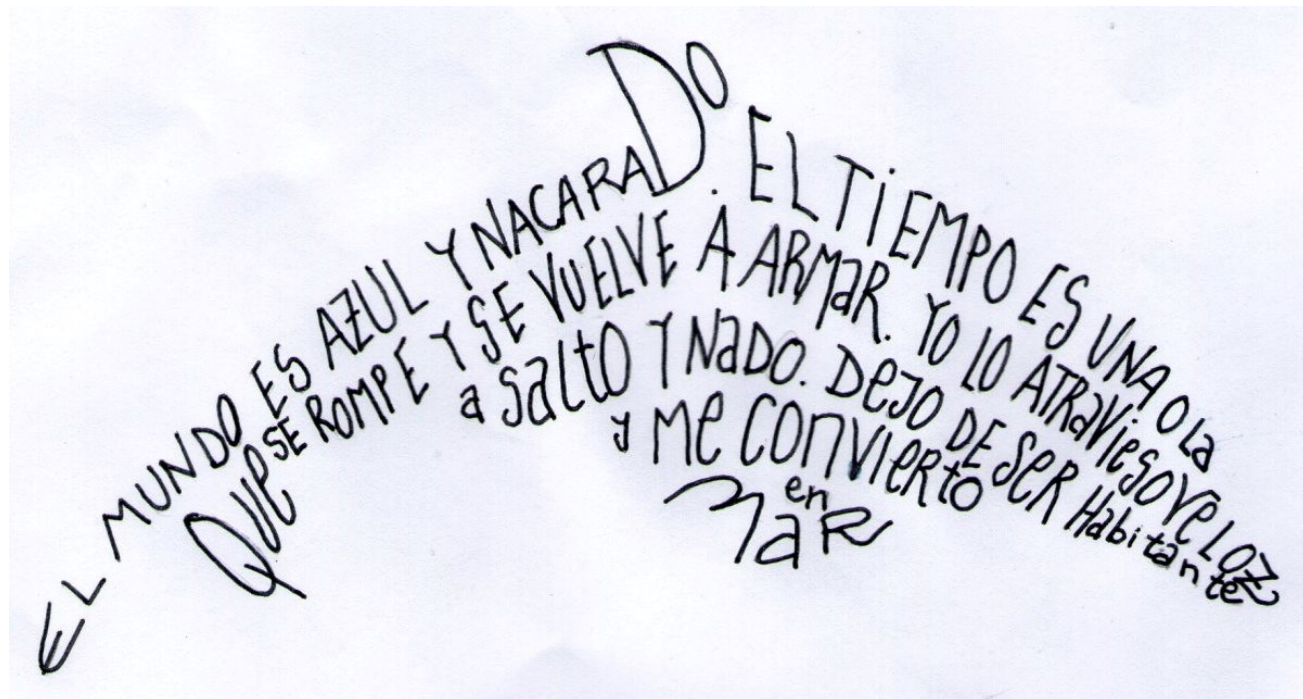 EL MUNDO ES AZUL Y NACARADO. EL TiEMPO ES UNA OLa
QUe SE ROMPE Y SE VUELVE A ARMaR. YO LO ATRaVieSO VeLOZ
a SaltO Y NaDO. DeJO DE SeR Habitante
y Me CONVIeRtO
en
MaR